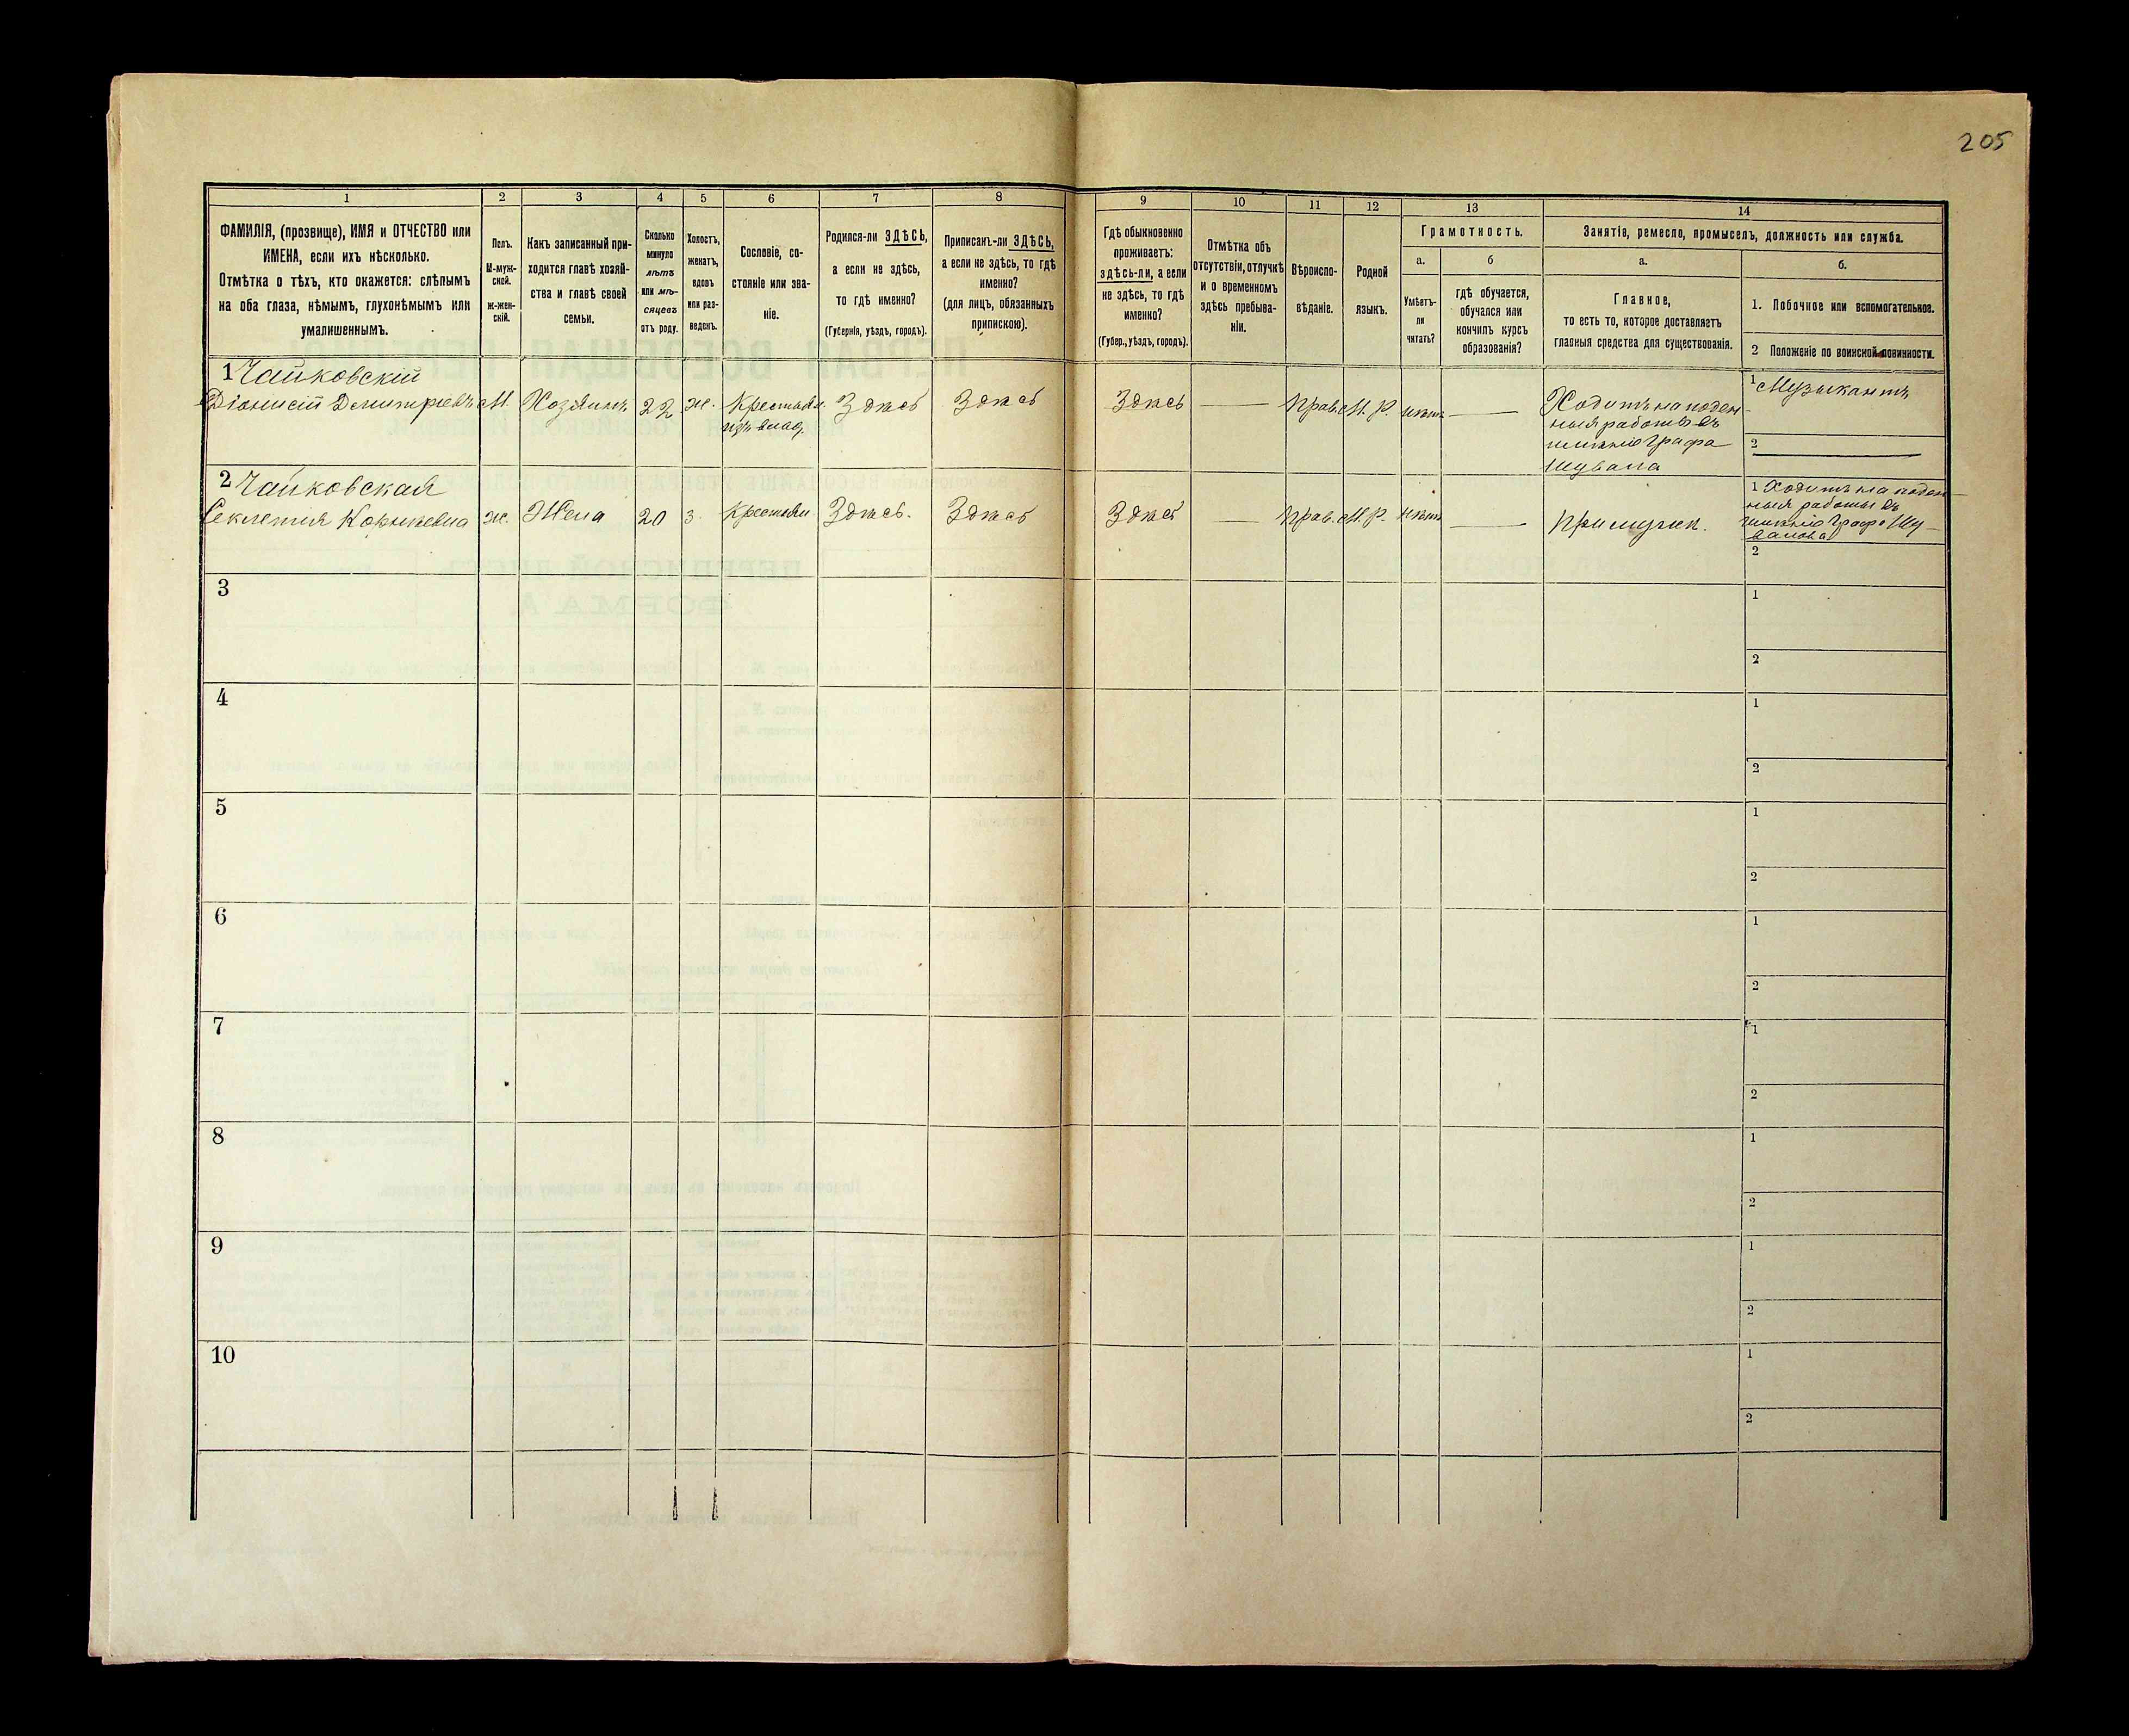 205
1
2
3
4
5
6
7
8
9
10
11
12
13
14
ФАМИЛІЯ, (прозвище), ИМЯ и ОТЧЕСТВО или
ИМЕНА, если ихъ нѣсколько.
Отмѣтка о тѣхъ, кто окажется: слѣпымъ
на оба глаза, нѣмымъ, глухонѣмымъ или
умалишеннымъ.
Полъ.
М-муж-
ской.
ж-жен-
скій.
Какъ записанный при-
ходится главѣ хозяй-
ства и главѣ своей
семьи.
Сколько
минуло
лѣтъ
или мѣ-
сяцевъ
отъ роду.
Холостъ,
женатъ,
вдовъ
или раз-
веденъ.
Сословіе, со-
стояніе или зва-
ніе.
Родился-ли ЗДѢСЬ,
а если не здѣсь,
то гдѣ именно?
(Губернія, уѣздъ, городъ).
Приписанъ-ли ЗДѢСЬ,
а если не здѣсь, то гдѣ
именно?
(для лицъ, обязанныхъ
припискою).
Гдѣ обыкновенно
проживаетъ:
здѣсь-ли, а если
не здѣсь, то гдѣ
именно?
(Губер., уѣздъ, городъ).
Отмѣтка объ
отсутствіи, отлучкѣ
и о временномъ
здѣсь пребыва-
ніи.
Вѣроиспо-
вѣданіе.
Родной
языкъ.
Грамотность.
а.
б
Умѣетъ-
ли
читать?
гдѣ обучается,
обучался или
кончилъ курсъ
образованія?
Занятіе, ремесло, промыселъ, должность или служба.
а.
б.
Главное,
то есть то, которое доставляетъ
главныя средства для существованія.
1. Побочное или вспомогательное.
2 Положеніе по воинской повинности.
1 Чайковскій
Діонисій Дмитріевъ М. Хозяинъ 22 ж. Крестьян. Здѣсь Здѣсь Здѣсь — Прав. М. Р. нѣтъ —
изъ влад.
Ходитъ на поден-
ныя работы въ
имѣніе Графа
Шувала
1 Музыкантъ
2
2 Чайковская
Секлетія Корнѣевна ж. Жена 20 з. Крестьян. Здѣсь. Здѣсь Здѣсь — Прав. М. Р. нѣтъ — При мужѣ.
1 Ходитъ на поден-
ныя работы въ
имѣніе Графа Шу-
валова
2
3
1
2
4
1
2
5
1
2
6
1
2
7
1
2
8
1
2
9
1
2
10
1
2